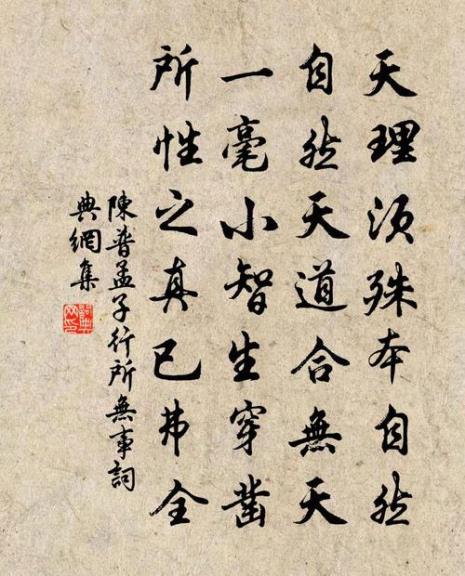 天理須殊本自然
自然天道合無天
一毫小智生穿鑿
所性之真已弗全
陳普孟子行所無事詞
典網集